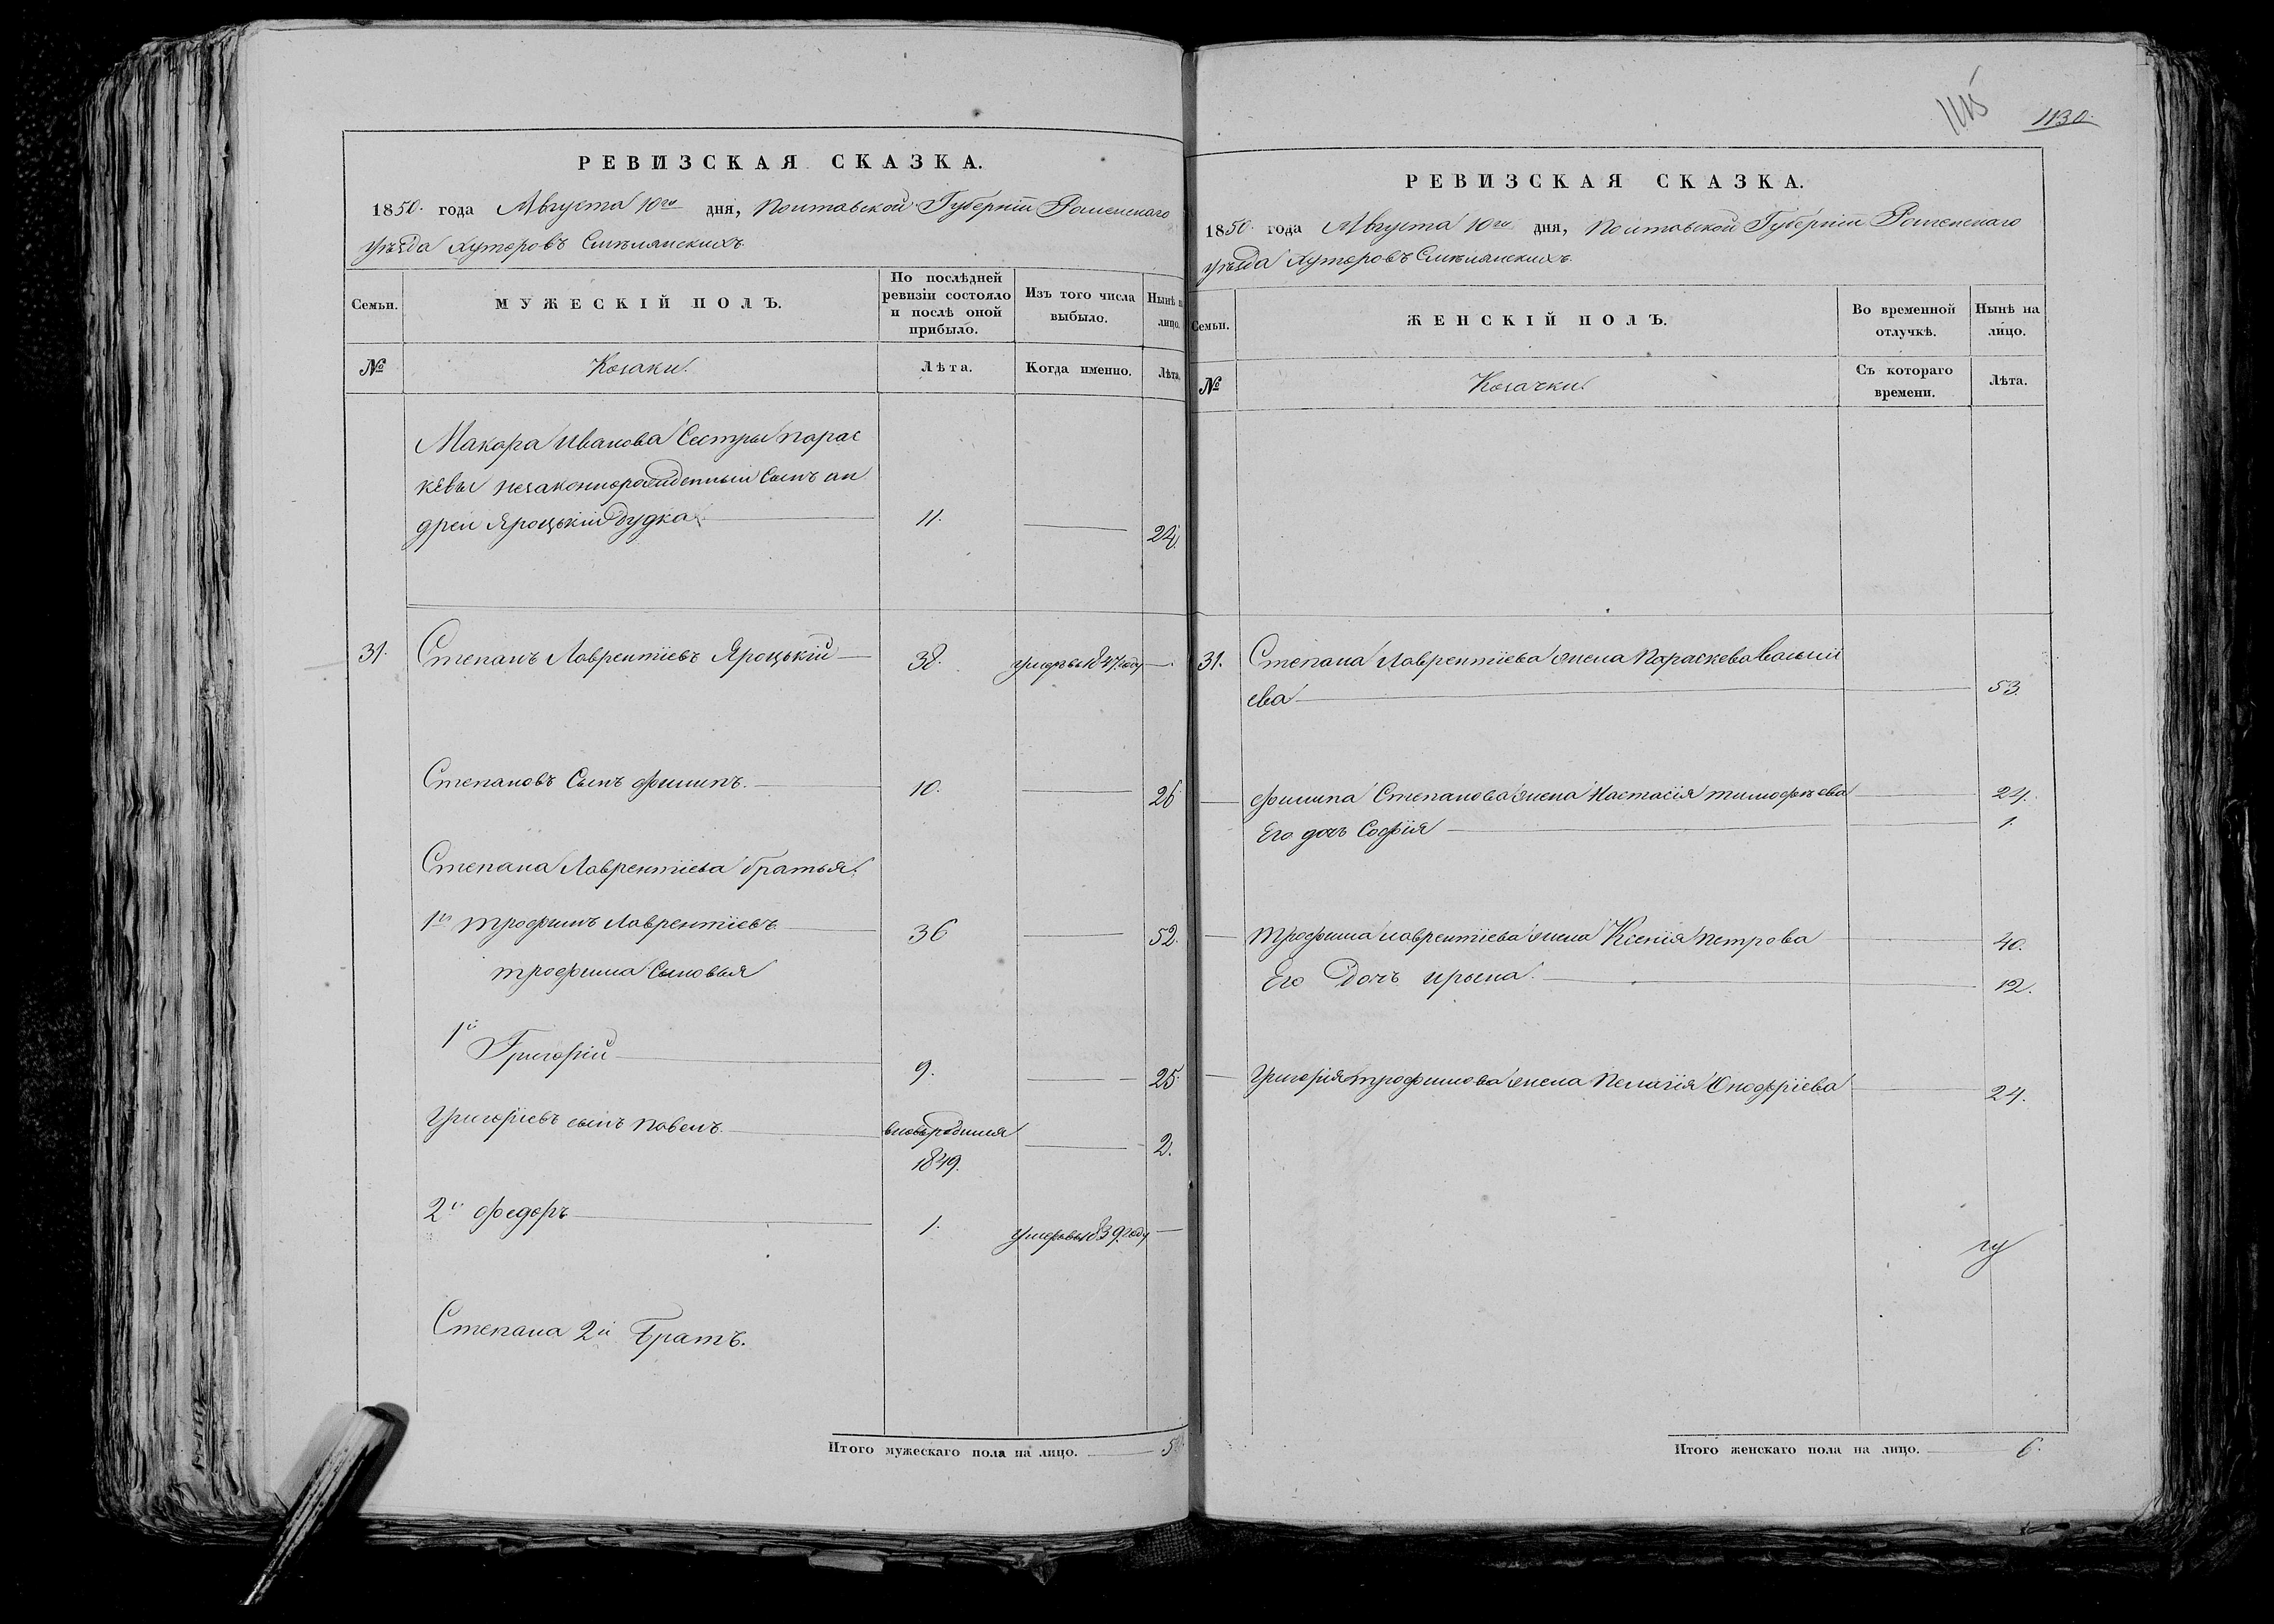 РЕВИЗСКАЯ СКАЗКА.
1850. года Августа 10го дня, Полтавской Губернiи Роменскаго
уѣзда Хуторовъ Смѣлянскихъ
Семьи.
МУЖЕСКІЙ ПОЛЪ.
По послѣдней
ревизіи состояло
и послѣ оной
прибыло.
Изъ того числа
выбыло.
Нынѣ н
лицо.
№
Козаки.
Лѣта.
Когда именно.
Лѣта.
Макара Иванова Сестры парас
кевы незаконнорожденный Сынъ ан
дрей Яроцькій Дудка
11.
24.
31.
Степанъ Лаврентіевъ Яроцькій
38.
умеръ въ 1847 году
Степановъ Сынъ филипъ.
10.
26
Степана Лаврентіева братья.
1й трофимъ Лаврентіевъ
36
52.
трофима Сыновья
1й Григорій
9.
25.
Григоріевъ сынъ павелъ.
вновьродился
1849.
2.
2й федоръ
1.
умеръ въ 1839 году
Степана 2й Братъ.
Итого мужескаго пола на лицо. 5
1115
1130.
РЕВИЗСКАЯ СКАЗКА.
1850. года Августа 10го дня, Полтавской Губерніи Роменскаго
уѣзда Хуторовъ Смѣлянскихъ
Семьи.
ЖЕНСКІЙ ПОЛЪ.
Во временной
отлучкѣ.
Нынѣ на
лицо.
№
Козачки.
Съ котораго
времени.
Лѣта.
31.
Степана Лаврентіева жена Параскева Васили
ева
53.
филипа Степанова жена Настасія тимофѣева
24.
Его дочъ Софія
1.
трофима лаврентіева жена Ксенія петрова
40.
Его Дочъ ирына.
12.
Григорія трофимова жена Пелагія Онофріева
24.
Итого женскаго пола на лицо. 6.